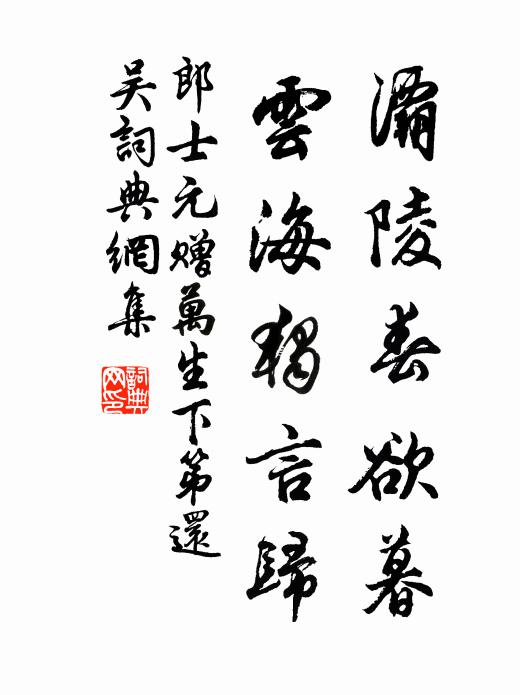 灞陵春欲暮
雲海獨言歸
郎士元贈萬生下第還
吴詞典網集
詞典
网印